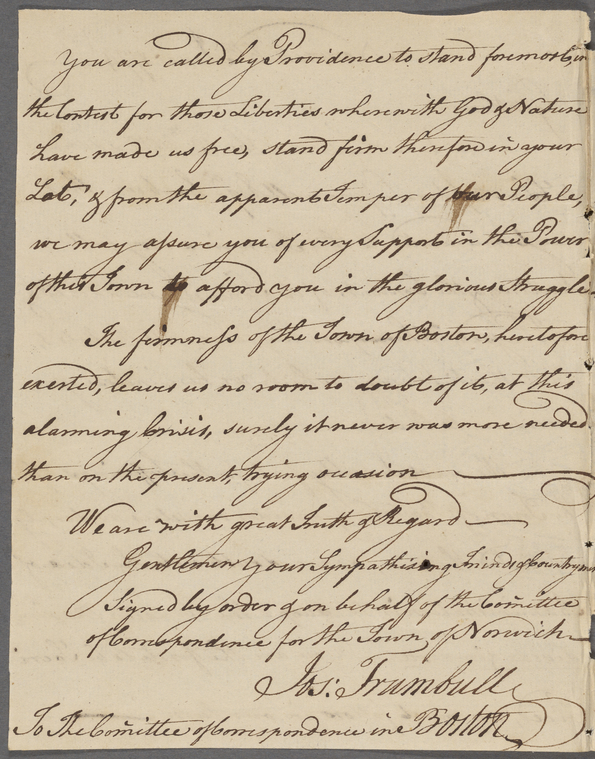 You are called by Providence to stand foremost, in
the Contest for those Liberties wherewith God & Nature
have made us free, stand firm therefore in your
Lot, & from the apparent Temper of our People,
we may assure you of every Support in the Power
of this Town to afford you in the glorious Struggle
The firmness of the Town of Boston, heretofore
exerted, leaves us no room to doubt of it, at this
alarming Crisis, surely it never was more needed
than on the present, trying occasion
We are with great Truth & Regard
Gentlemen Your Sympathising Friends & Countrymen
Signed by order & on behalf of the Comittee
of Correspondence for the Town of Norwich
Jos: Trumbull
To The Comittee of Correspondence in Boston